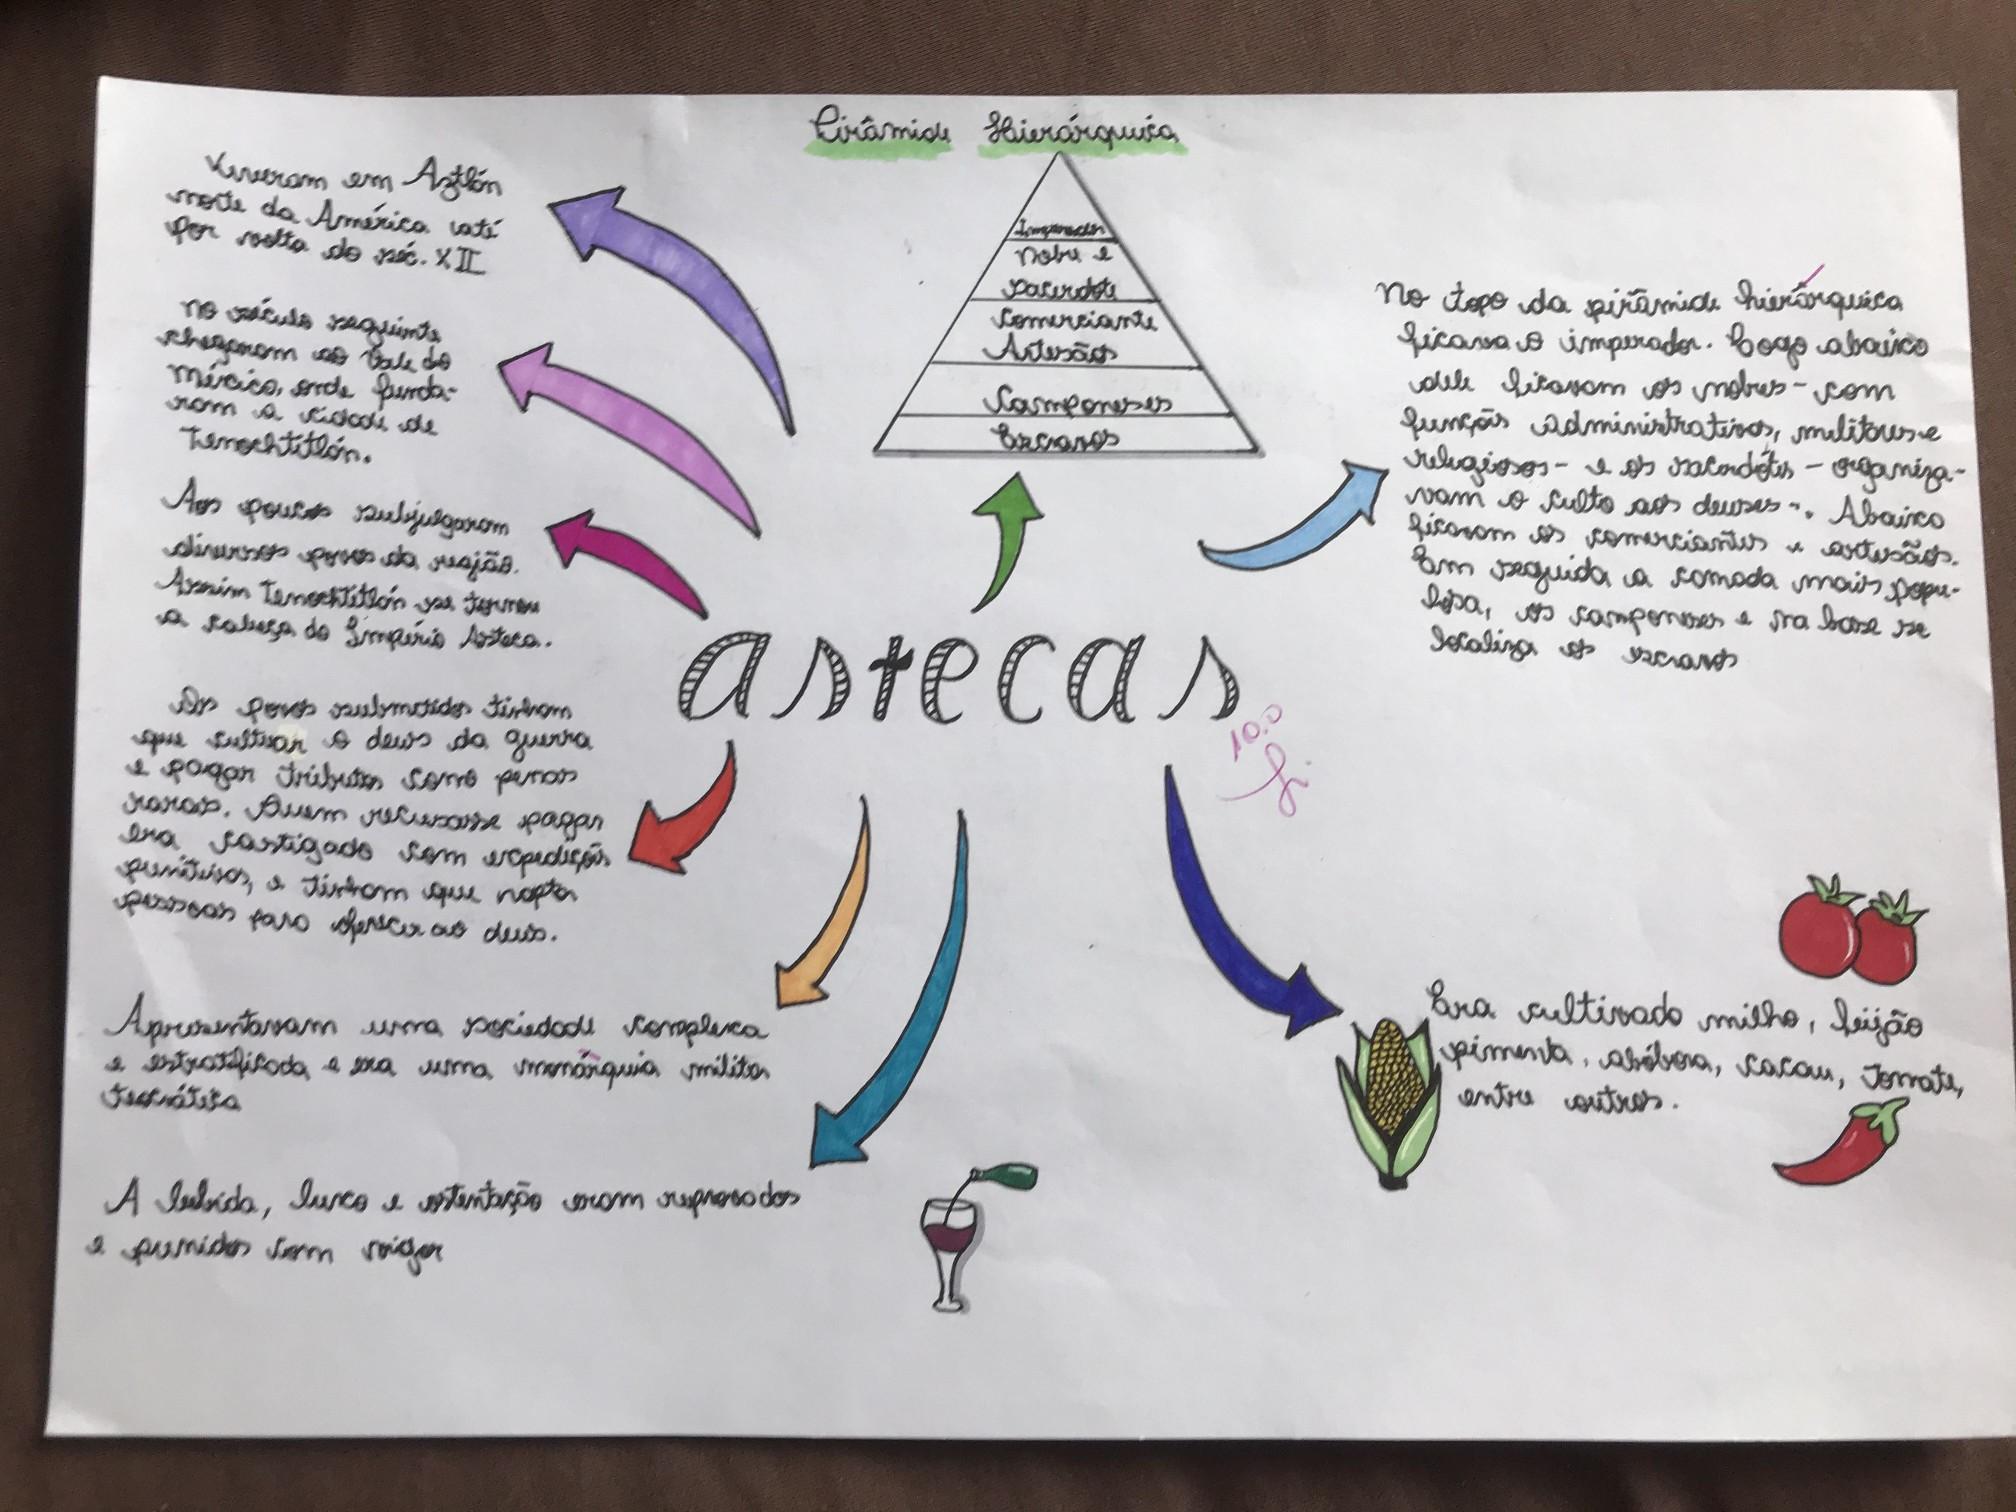 Pirâmide Hierárquica
Imperador
Nobre e
sacerdote
Comerciante
Artesãos
Camponeses
Escravos
Viveram em Aztlán
norte da América até
por volta do séc. XII
No século seguinte
chegaram ao Vale do
México, onde funda-
ram a cidade de
Tenochtitlán.
Aos poucos subjulgaram
diversos povos da região.
Assim Tenochtitlán se tornou
a cabeça do Império Asteca.
Os povos submetidos tinham
que cultuar o deus da guerra
e pagar tributos como penas
raras. Quem recusasse pagar
era castigado com expedições
punitivas, e tinham que raptar
pessoas para oferecer ao deus.
Apresentavam uma sociedade complexa
e estratificada e era uma monárquia militar
teocrática
A bebida, luxo e ostentação eram reprovados
e punidos com vigor
astecas
10.0
No topo da pirâmide hierárquica
ficava o imperador. Logo abaixo
dele ficavam os nobres - com
funções administrativas, militares e
religiosos - e os sacerdotes - organiza-
vam o culto aos deuses -. Abaixo
ficavam os comerciantes e artesãos.
Em seguida a camada mais popu-
losa, os camponeses e na base se
localiza os escravos
Era cultivado milho, feijão
pimenta, abóbora, cacau, tomate,
entre outros.